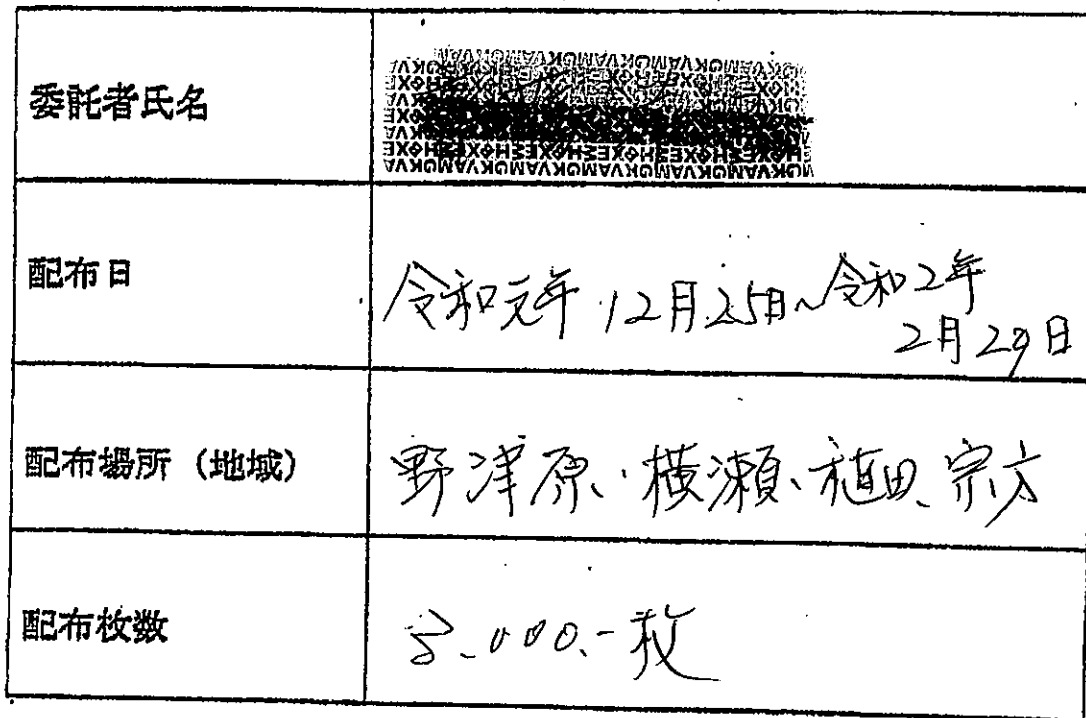 委託者氏名
配布日
令和元年12月25日~令和2年
2月29日
配布場所（地域）
野津原、横瀬、稙田、宗方
配布枚数
枚